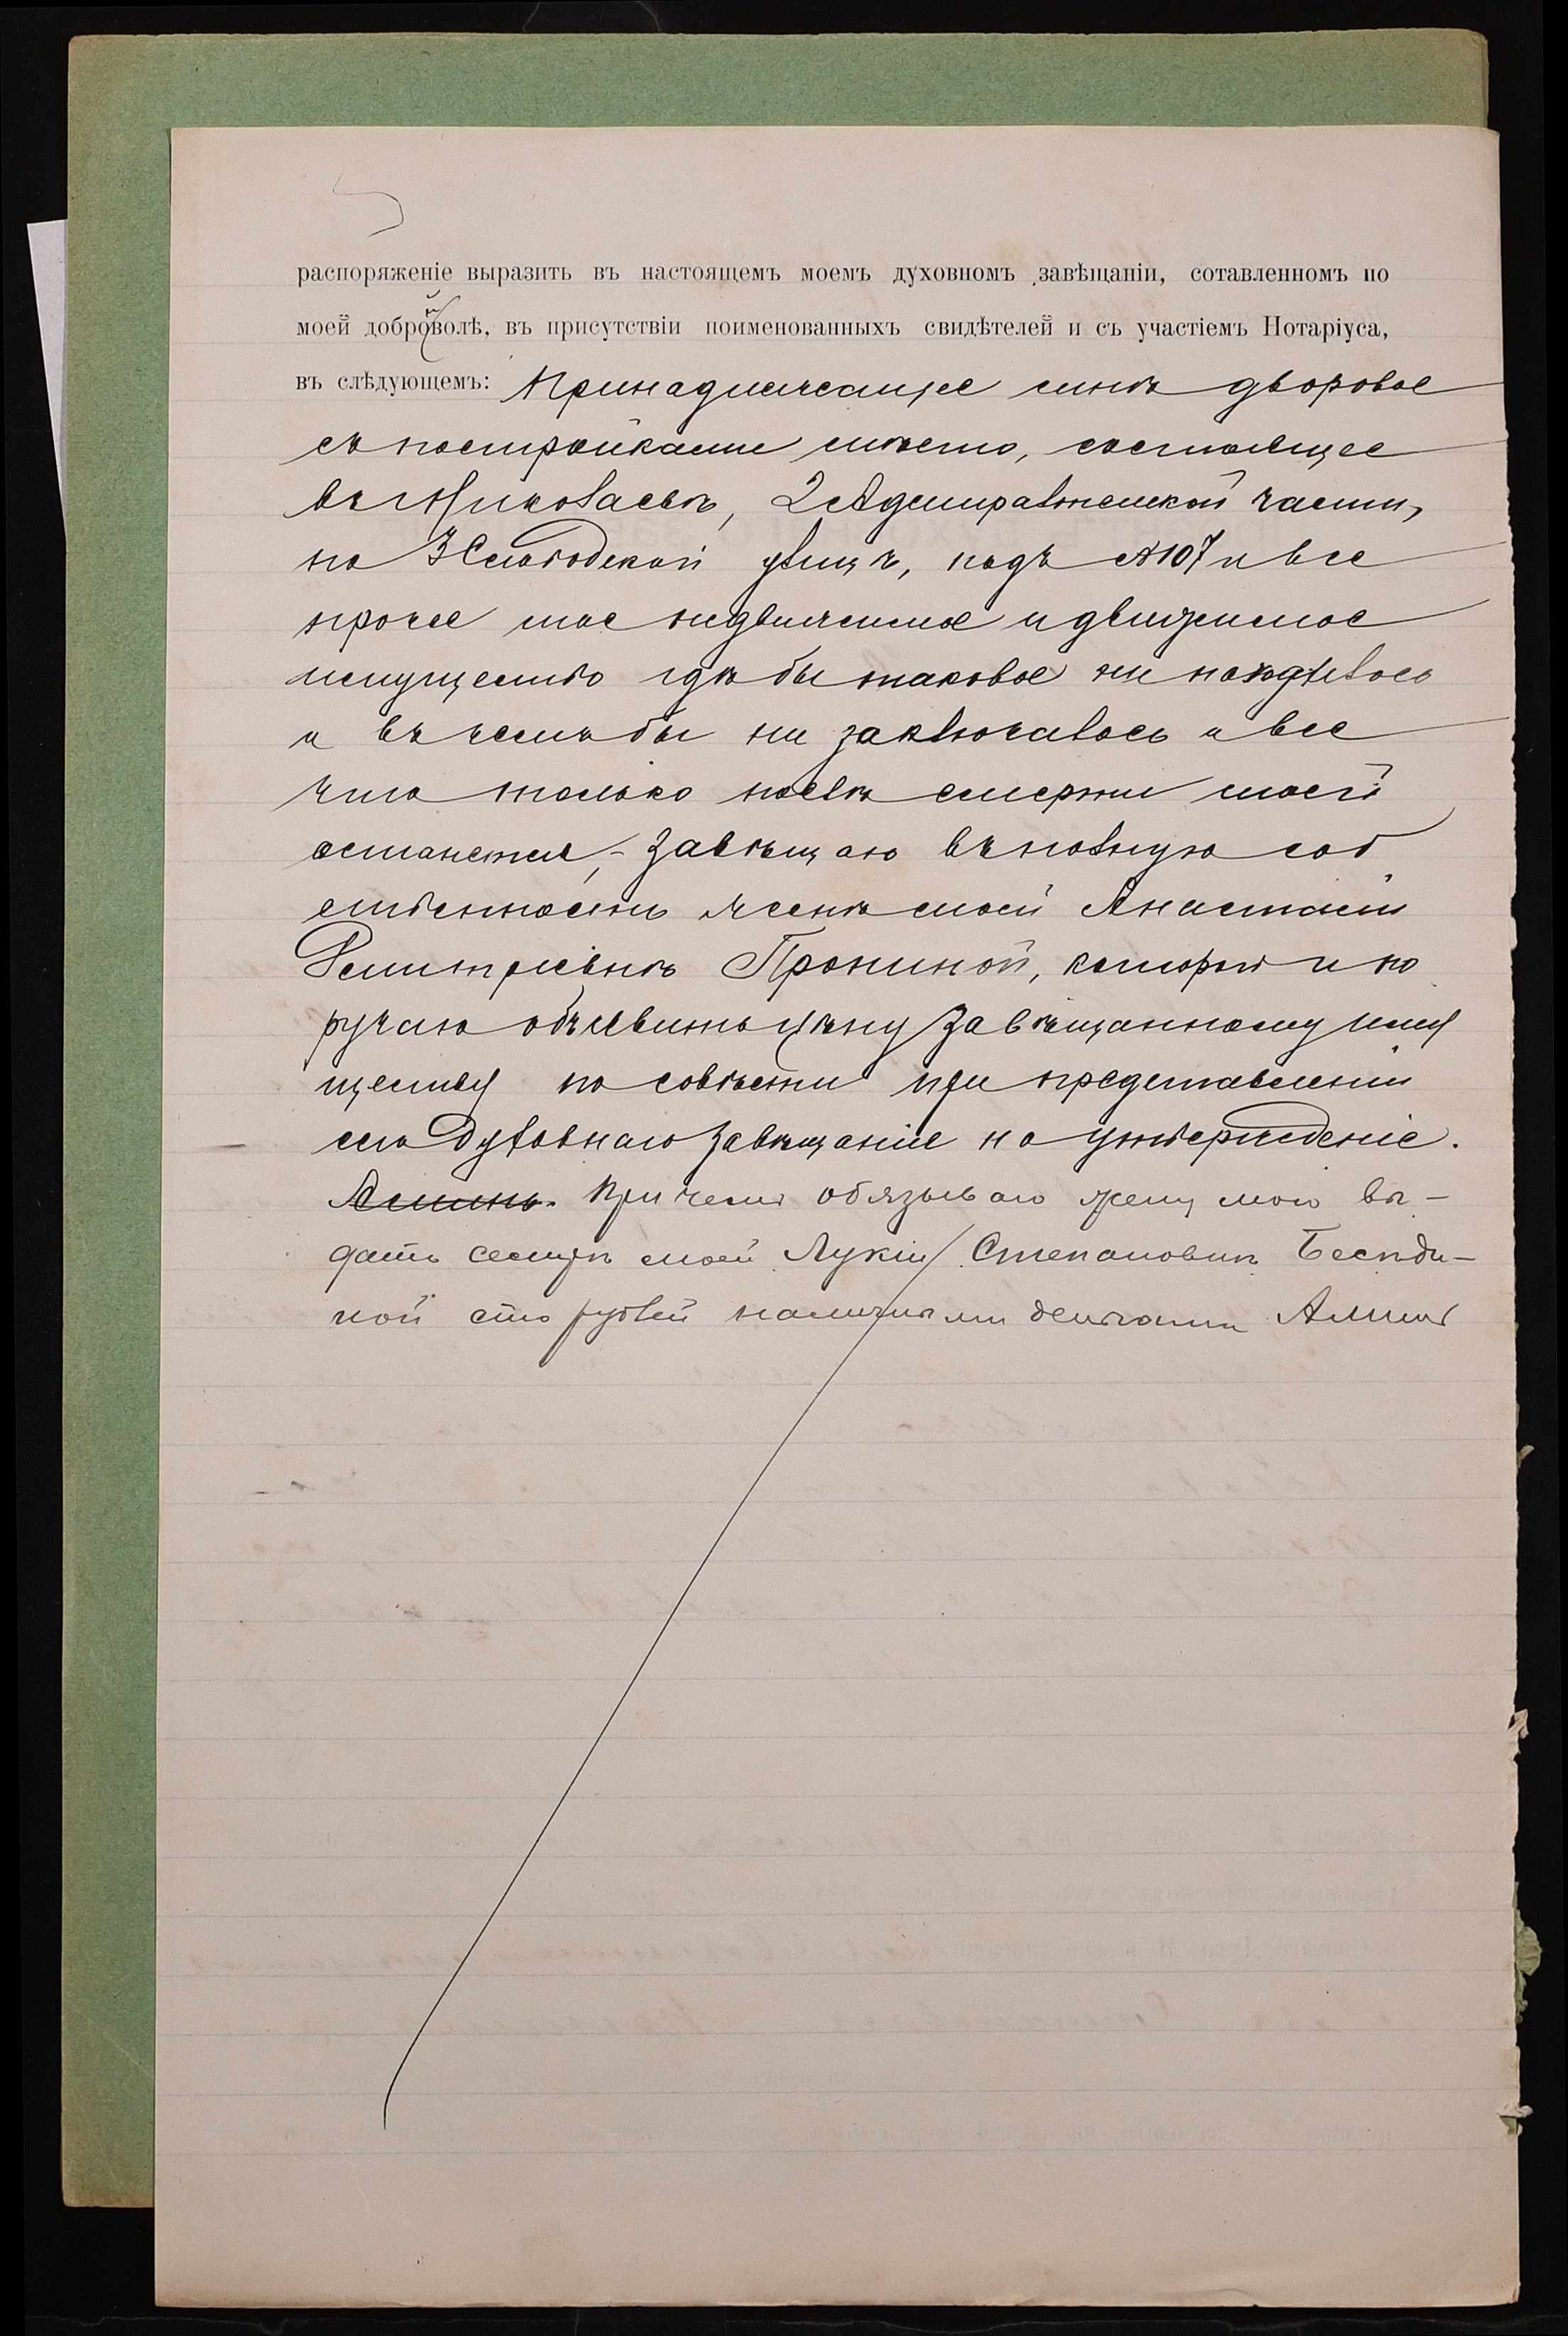 распоряженіе выразить въ настоящемъ моемъ духовномъ завѣщаніи, сотавленномъ по
моей доброй волѣ, въ присутствіи поименованныхъ свидѣтелей и съ участіемъ Нотаріуса,
въ слѣдующемъ: Принадлежащее мнѣ дворовое
съ постройками мѣсто, состоящее
въ г Николаевѣ, 2 Адмиралтейской части,
на 3 Слободской улицѣ, подъ № 107 и все
прочее мое недвижимое и движимое
имущество гдѣ бы таковое ни находилось
и въ чемъ бы ни заключалось и все
что только послѣ смерти моей
останется, - завѣщаю въ полную соб
ственность женѣ моей Анастасіи
Дмитріевнѣ Прониной, которой и по
ручаю объявить цѣну завѣщанному иму
ществу по совѣсти при представленіи
сего духовнаго завѣщанія на утвержденіе.
Аминь. При чемъ обязываю жену мою вы-
дать сестрѣ моей Лукіи Степановнѣ Бесѣди-
ной сто рублей наличными деньгами Аминь